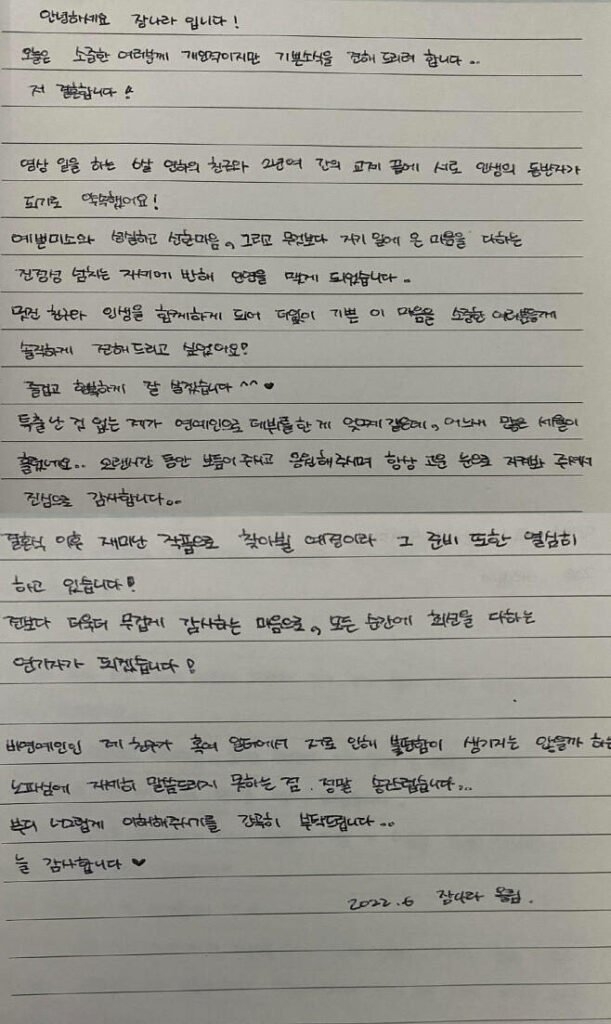 안녕하세요 장나라 입니다!
오늘은 소중한 여러분께 개인적이지만 기쁜소식을 전해 드리려 합니다..
저 결혼합니다!
영상 일을 하는 6살 연하의 친구와 2년여 간의 교제 끝에 서로 인생의 동반자가
되기로 약속했어요!
예쁜미소와 성실하고 선한마음, 그리고 무엇보다 자기 일에 온 마음을 다하는
진정성 넘치는 자세에 반해 인연을 맺게 되었습니다..
멋진 친구와 인생을 함께하게 되어 더없이 기쁜 이 마음을 소중한 여러분들께
솔직하게 전해드리고 싶었어요!
즐겁고 행복하게 잘 살겠습니다 ^^ ♥
특출난 점 없는 제가 연예인으로 데뷔를한 게 엊그제 같은데, 어느새 많은 세월이
흘렀네요.. 오랜시간 동안 보듬어주시고 응원해주시며 항상 고운 눈으로 지켜봐 주셔서
진심으로 감사합니다..
결혼식 이후 재미난 작품으로 찾아뵐 예정이라 그 준비 또한 열심히
하고 있습니다!
전보다 더욱더 무겁게 감사하는 마음으로, 모든 순간에 최선을 다하는
연기자가 되겠습니다!
비연예인인 제 친구가 혹여 일터에서 저로 인해 불편함이 생기지는 않을까 하는
노파심에 자세히 말씀드리지 못하는 점, 정말 송구스럽습니다...
부디 너그럽게 이해해주시기를 간곡히 부탁드립니다..
늘 감사합니다 ♥
2022.6 장나라 올림.